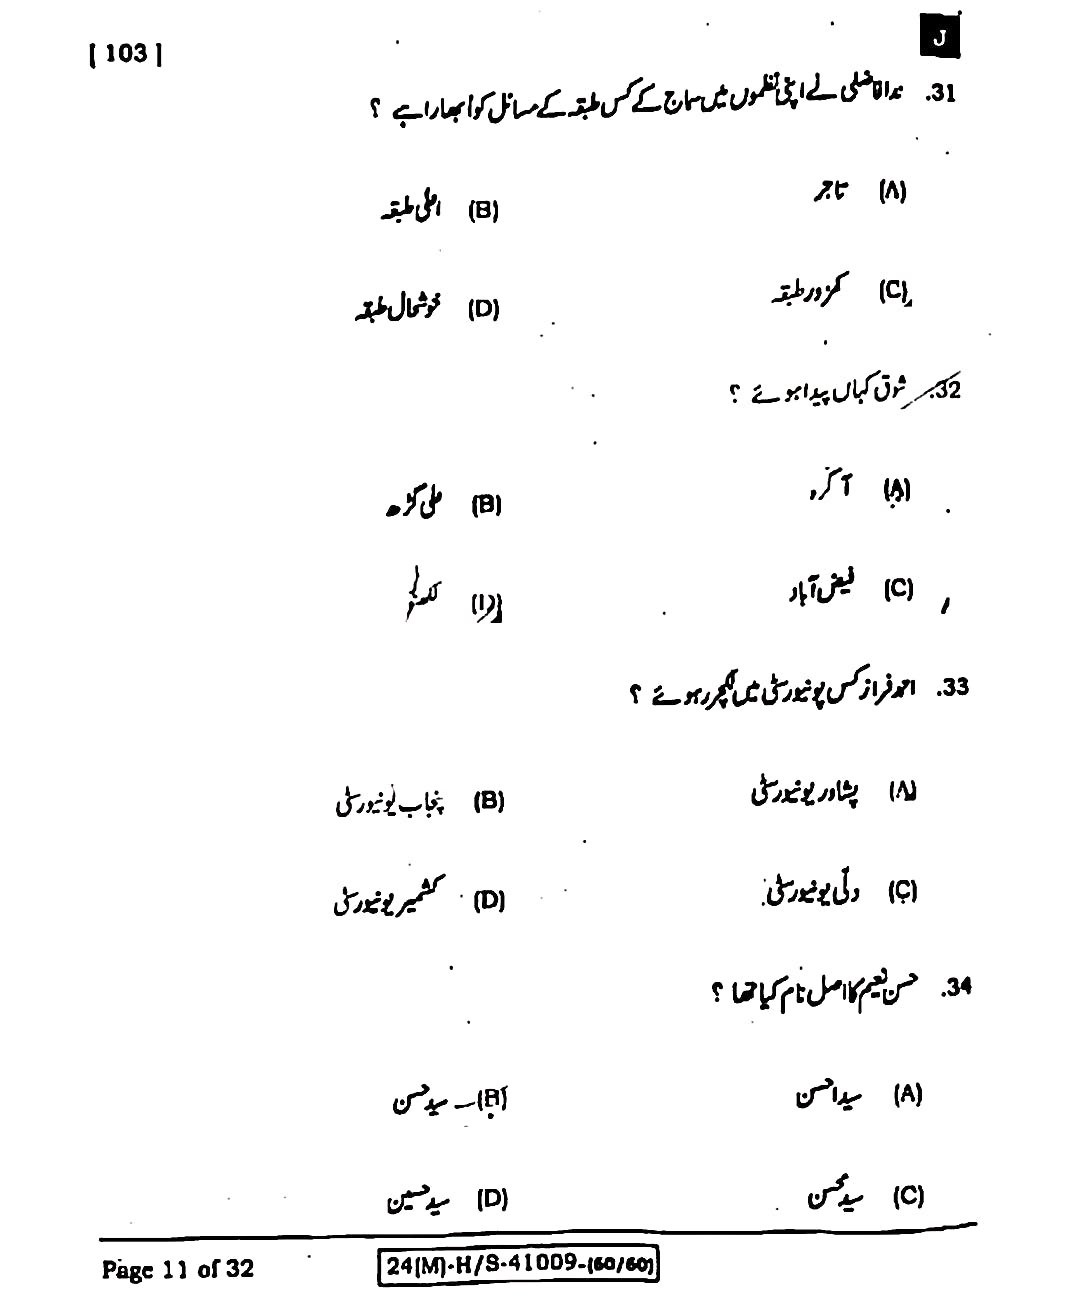 [ 103 ]
J
31. ندا فاضلی نے اپنی نظموں میں سماج کے کس طبقہ کے مسائل کو ابھارا ہے ؟
(A) تاجر
(B) اعلیٰ طبقہ
(C) کمزور طبقہ
(D) خوشحال طبقہ
32. شوق کہاں پیدا ہوئے ؟
(A) آگرہ
(B) علی گڑھ
(C) فیض آباد
(D) لکھنؤ
33. احمد فراز کس یونیورسٹی میں لکچرر ہوئے ؟
(A) پشاور یونیورسٹی
(B) پنجاب یونیورسٹی
(C) دلّی یونیورسٹی
(D) کشمیر یونیورسٹی
34. حسن نعیم کا اصل نام کیا تھا ؟
(A) سید احسن
(B) سید حسن
(C) سید محسن
(D) سید حسین
Page 11 of 32
24(M)-H/S-41009-(60/60)